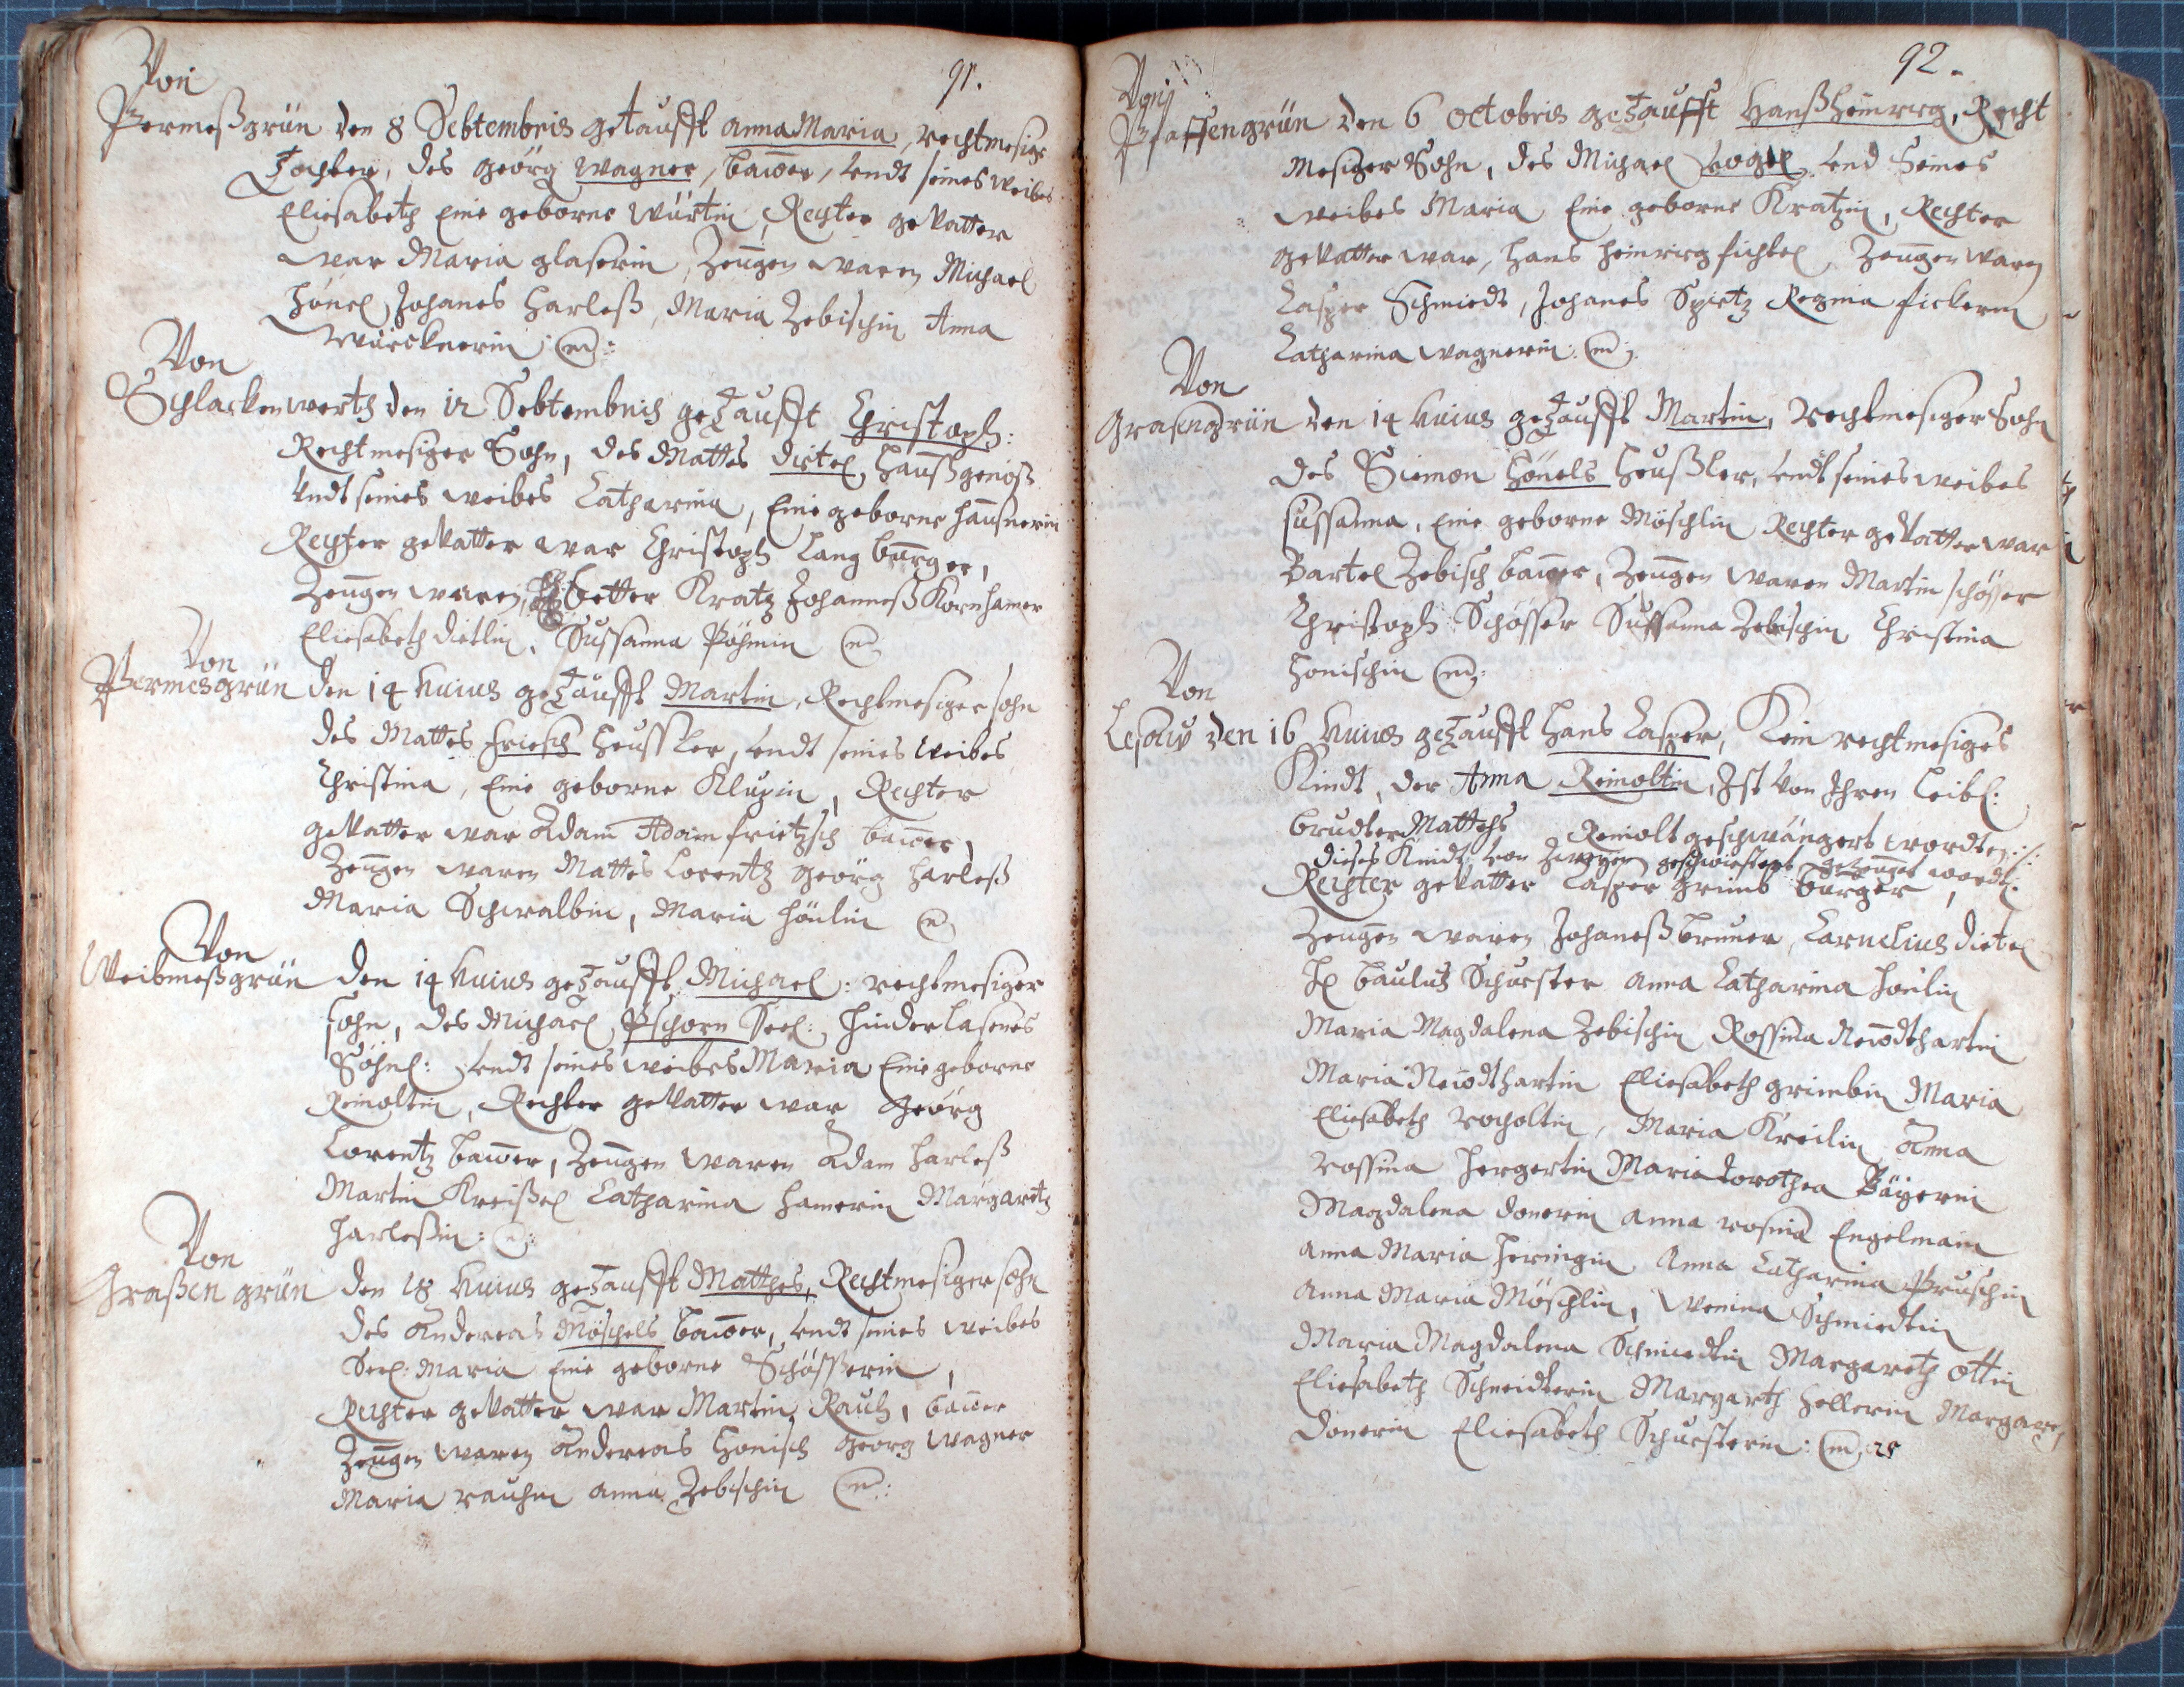 91.
Von
Permeßgrün den 8 Sebtembris getaufft Anna Maria, rechtmesige
Tochter, des Geörg Wagner, bawer, vndt seines weibes
Eliesabeth Eine geborne Würtin, Rechter gevatter
war Maria glaserin, Zeugen waren Michael
Hönel Johanes Harleß, Maria Zebischin Anna
Würcknerin:
Von
Schlackenwerth den 12 Sebtembris getaufft Christoph:
Rechtmesiger Sohn, des Mattes Dietel, Haußgenoß
vndt seines weibes Catharina, Eine geborne Haußnerin
Rechter gevatter war Christoph Lang burger,
Zeugen waren, Petter Kratz Johanneß Kornhamer
Eliesabeth Dietlin, Sussanna Pöhmin
Von
Permesgrün den 14 huius getaufft Martin, Rechtmesiger sohn
des Mattes Friesch Heussler, vndt seines weibes
Christina, Eine geborne Klupin, Rechter
gevatter war Adam Adam Frietzsch bawer,
Zeugen waren Mattes Lorentz Geörg Harleß
Maria Schwalbin, Maria Hönlin
Von
Weibmeßgrün den 14 huius getaufft Michael: rechtmesiger
sohn, des Michael Pschorn Seel: hinderlasenes
Söhnl: vndt seines weibes Maria Eine geborne
Reinoltin, Rechter gevatter war Geörg
Lorentz bawer, Zeugen waren Adam Harleß
Martin Kreißel Catharina Hamerin Margaretz
Harleßin:
Von
Graßengrün den 18 huius getaufft Matthes, Rechtmesiger sohn
des Andereas Möschels bawer, vndt seines weibes
Seel: Maria Eine geborne Schösserin,
Rechter gevatter war Martin Rauh, bauer
Zeugen waren Andereas Honisch Georg Wagner
Maria Rauhin Anna Zebischin
92.
Von
Pfaffengrün den 6 Octobris getaufft Hanß Heinrich, Recht
mesiger Sohn, des Michael Vogel vnd Seines
weibes Maria Eine geborne Kratzin, Rechter
gevatter war, Hans Heinrich Fichtel, Zeugen waren
Casper Schmiedt, Johanes Spietz Regina Fickerin
Catharina Wagnerin:
Von
Grasengrün den 14 huius getaufft Martin, rechtmesiger Sohn
des Siemon Hönels Heußler, vndt seines weibes
Sussanna, Eine geborne Möschlin Rechter gevatter war
Bartel Zebisch bawer, Zeugen waren Martin Schösser
Christoph Schösser Sussanna Zebischin Christina
Honischin
Von
Lesaw den 16 huius getaufft Hans Casper, Kein rechtmesiges
Kindt, der Anna Reinoltin, Ist von Ihren Leibl:
brudter Matthes Reinolt geschwängert wordten:
dieses Kindt von zweyen geschwistert gezeuget wordt:
Rechter gevatter Casper Grimb burger,
Zeugen waren Johaneß Bruner, Carnelius Dietel
H: Baulus Schuster Anna Catharina Hönlin
Maria Magdalena Zebischin Rossina Newdthartin
Maria Newdthartin Eliesabeth Griembin Maria
Eliesabeth Rocholtin, Maria Kreilin Anna
Rossina Hergertin Maria Dorothea Päyerin
Magdalena Donerin Anna Rosina Engelmain
Anna Maria Heringin Anna Catharina Pruschin
Anna Maria Möschlin, Schmiedtin
Maria Magdalena Schmiedtin Margareth Ottin
Eliesabeth Schneidterin Margareth Hellerin Margare,
Donerin Eliesabeth Schusterin: